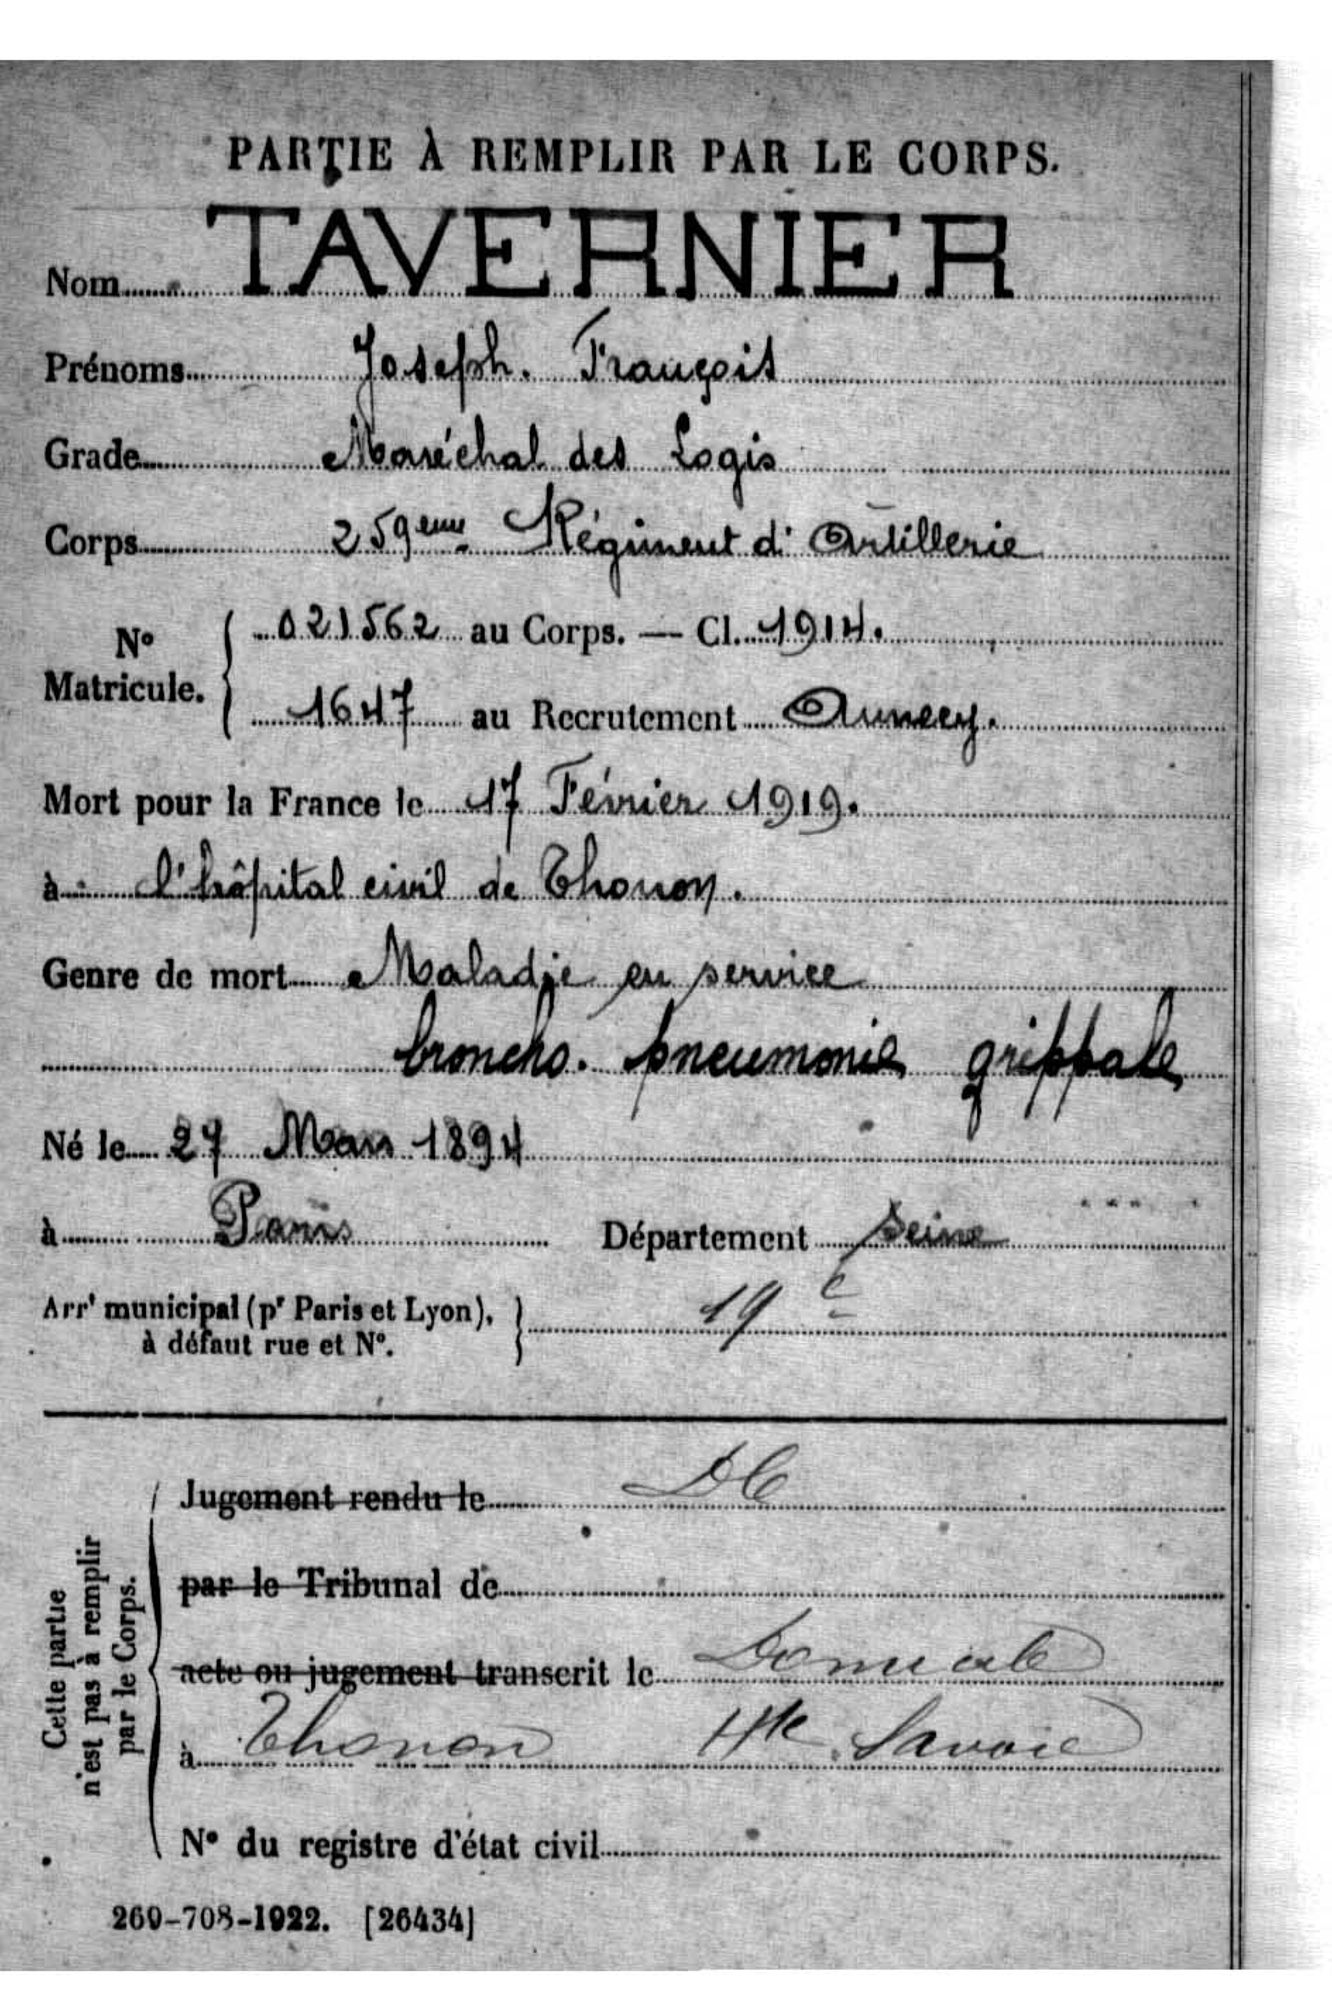 PARTIE À REMPLIR PAR LE CORPS.
Nom TAVERNIER
Prénoms Joseph. François
Grade Maréchal des Logis
Corps 259eme Régiment d'Artillerie
N° Matricule. 021562 au Corps. — Cl. 1914.
1647 au Recrutement Annecy.
Mort pour la France le 17 Février 1919.
à l'hôpital civil de Thonon.
Genre de mort Maladie en service
broncho. pneumonie grippale
Né le 27 Mars 1894
à Paris Département Seine
Arrt municipal (pr Paris et Lyon), 19e
à défaut rue et N°.
Cette partie n'est pas à remplir par le Corps.
Jugement rendu le
par le Tribunal de
acte ou jugement transcrit le Domicile
à Thonon Hte Savoie
N° du registre d'état civil
269-708-1922. [26434]